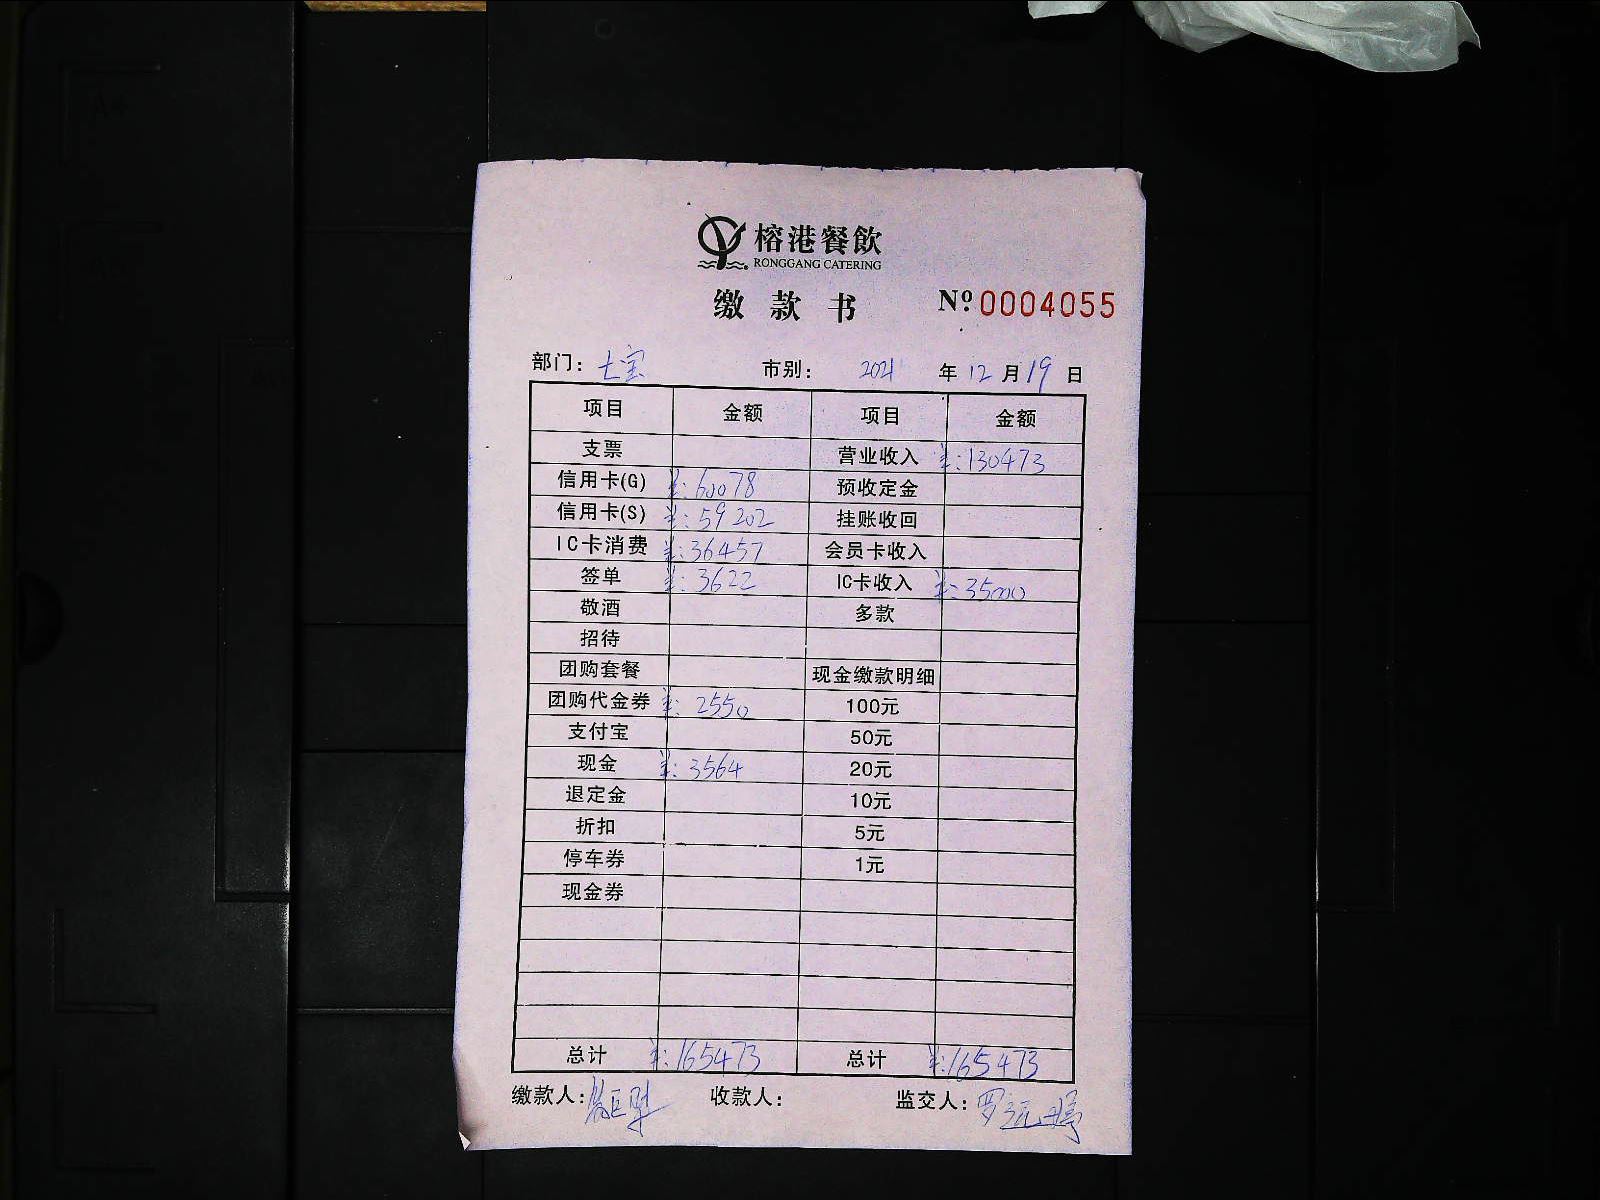 榕港餐飲
RONGGANG CATERING
缴款书 Nº.0004055
部门：七宝 市别： 2021 年 12 月 19 日
项目 金额 项目 金额
支票 营业收入 ¥:130473
信用卡(G) ¥:60078 预收定金
信用卡(S) ¥:59202 挂账收回
IC卡消费 ¥:36457 会员卡收入
签单 ¥:3622 IC卡收入 ¥:35000
敬酒 多款
招待
团购套餐 现金缴款明细
团购代金券 ¥:2550 100元
支付宝 50元
现金 ¥:3564 20元
退定金 10元
折扣 5元
停车券 1元
现金券
总计 ¥:165473 总计 ¥:165473
缴款人： 收款人： 监交人：罗